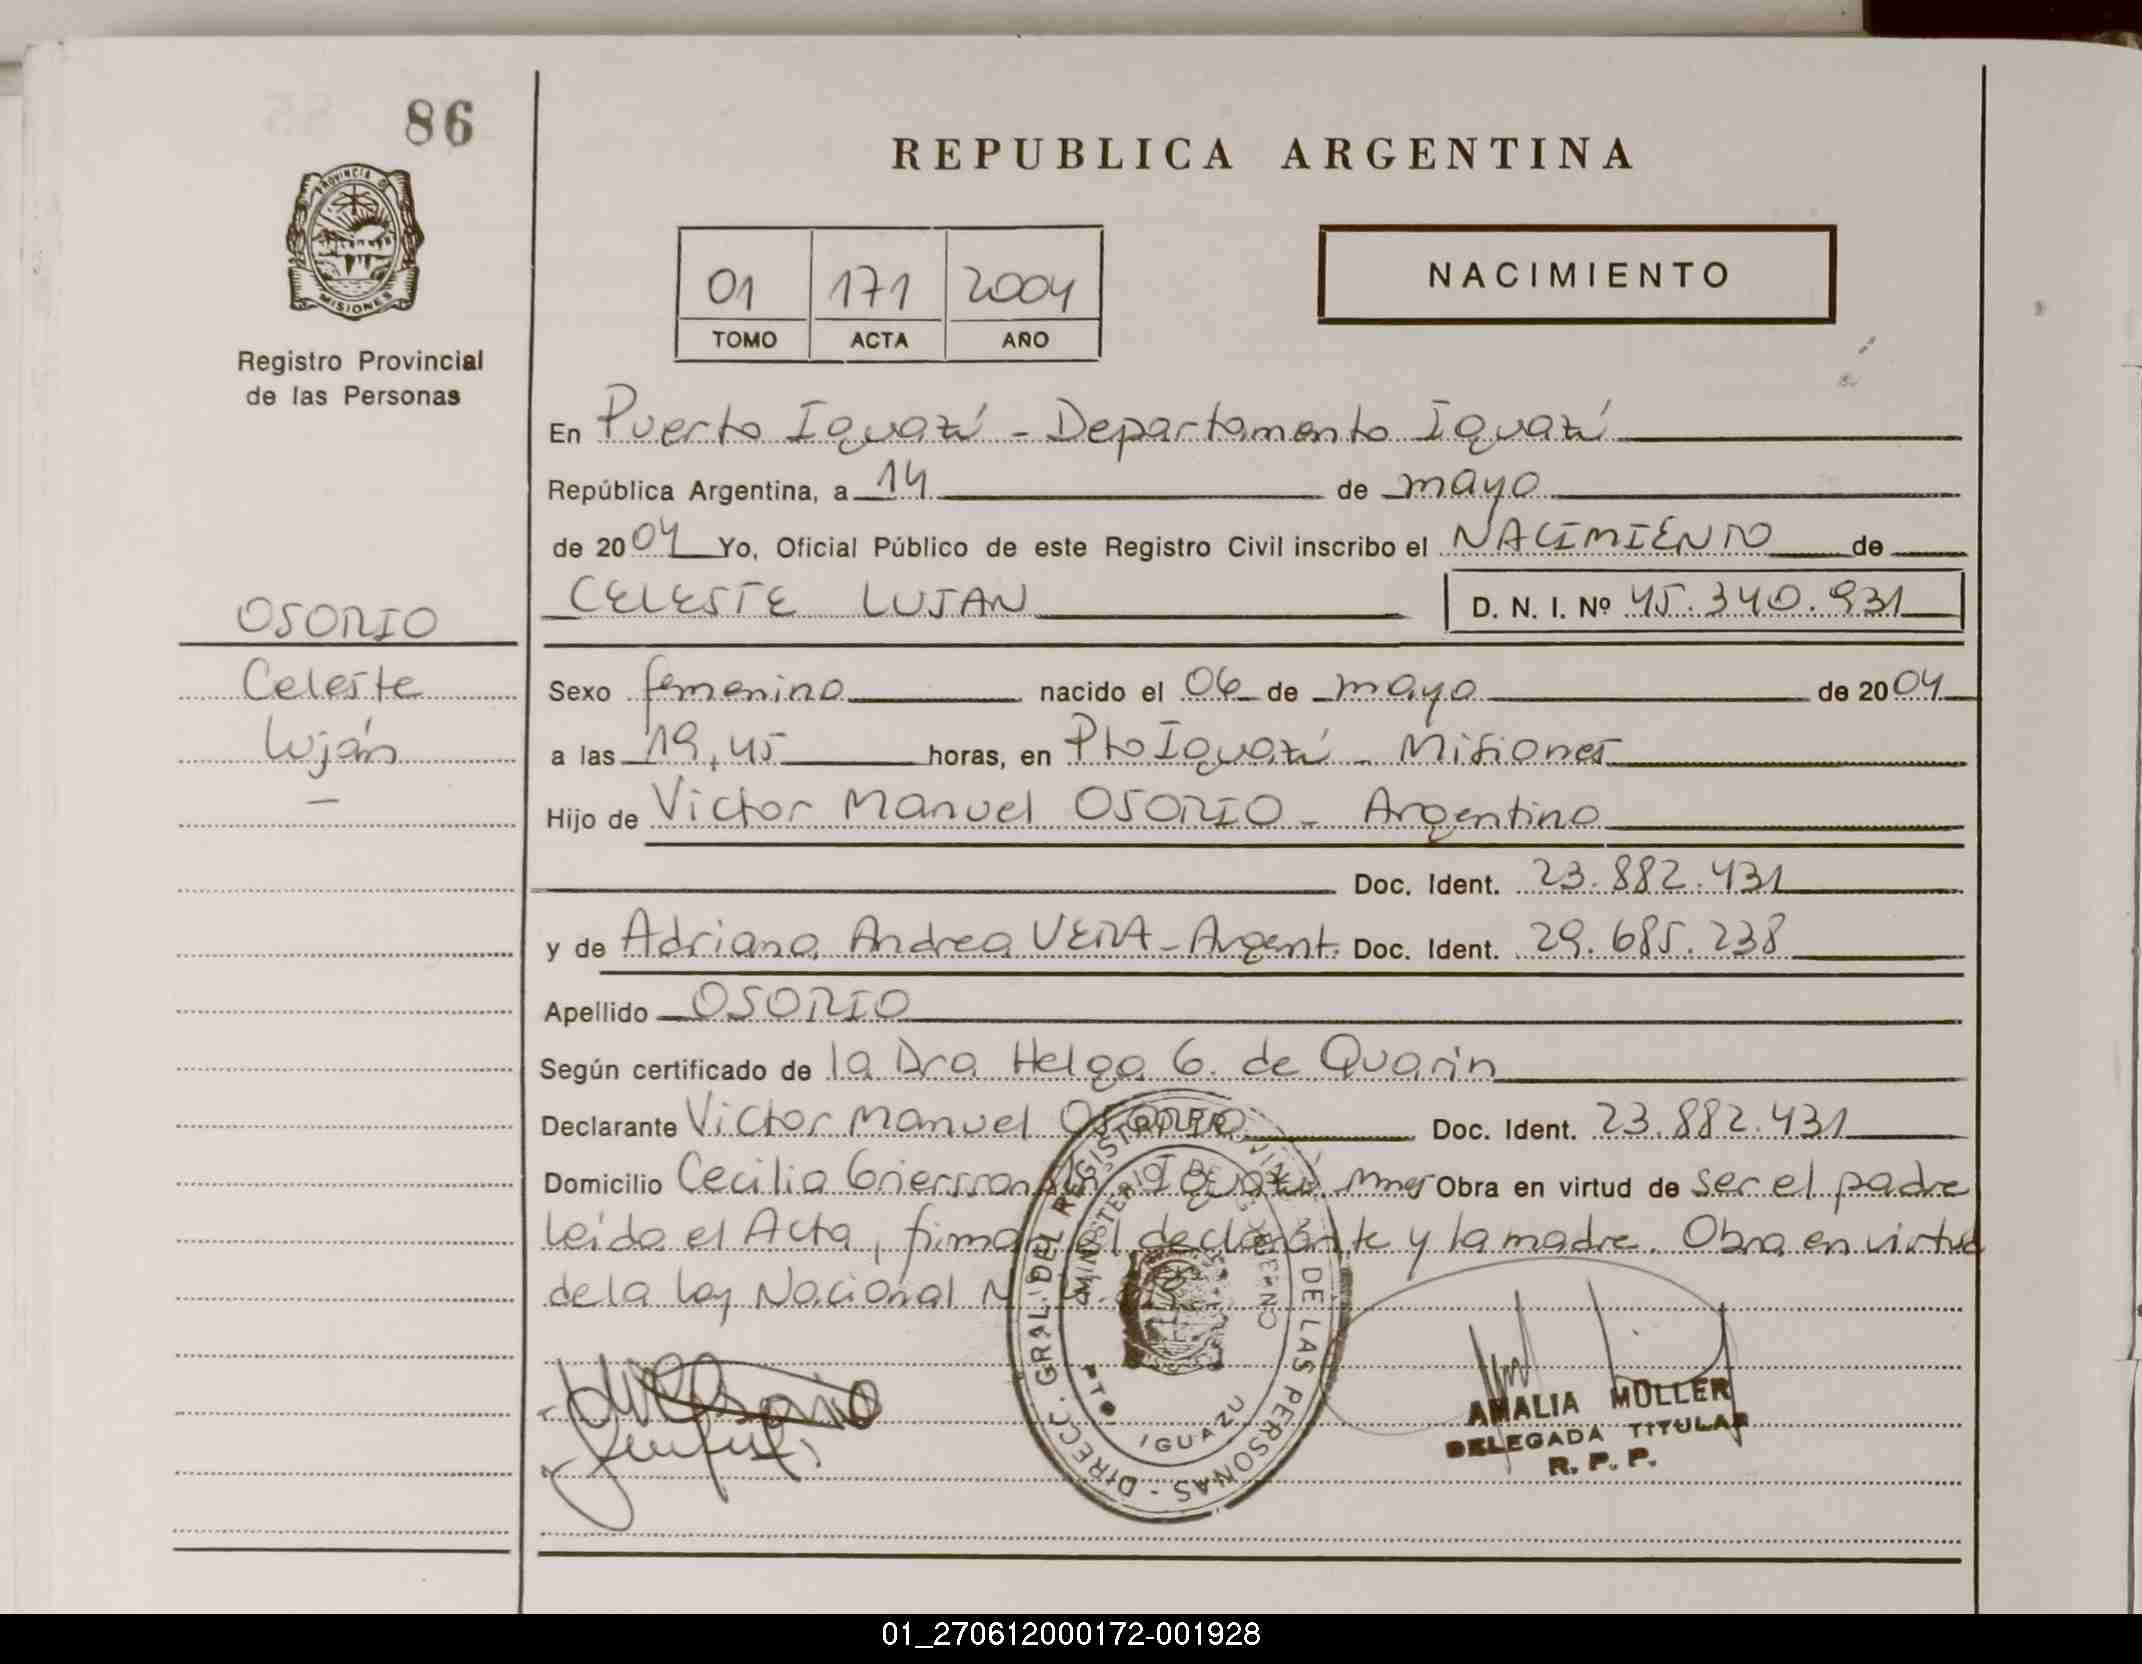 86
REPUBLICA ARGENTINA
PROVINCIA D
MISIONES
Registro Provincial
de las Personas
01 171 2004
TOMO ACTA AÑO
NACIMIENTO
En Puerto Iguazú - Departamento Iguazú
República Argentina, a 14 de mayo
de 2004 Yo, Oficial Público de este Registro Civil inscribo el NACIMIENTO de
CELESTE LUJAN D. N. I. Nº 45.340.931
OSORIO
Celeste
Luján
Sexo femenino nacido el 06 de mayo de 2004
a las 19,45 horas, en Pto Iguazú - Misiones
Hijo de Victor Manuel OSORIO - Argentino
Doc. Ident. 23.882.431
y de Adriana Andrea VERA - Argent. Doc. Ident. 29.685.238
Apellido OSORIO
Según certificado de la Dra Helga G. de Quarin
Declarante Victor Manuel OSORIO Doc. Ident. 23.882.431
Domicilio Cecilia Griersson Iguazú. Mnes Obra en virtud de ser el padre
leída el Acta, firma el declarante y la madre. Obra en virtud
de la Ley Nacional N
DIRECC. GRAL. DEL REGISTRO PROVINC. DE LAS PERSONAS -
MINISTERIO DE GOBIERNO
PTO IGUAZU
AMALIA MÜLLER
DELEGADA TITULAR
R. P. P.
01_270612000172-001928